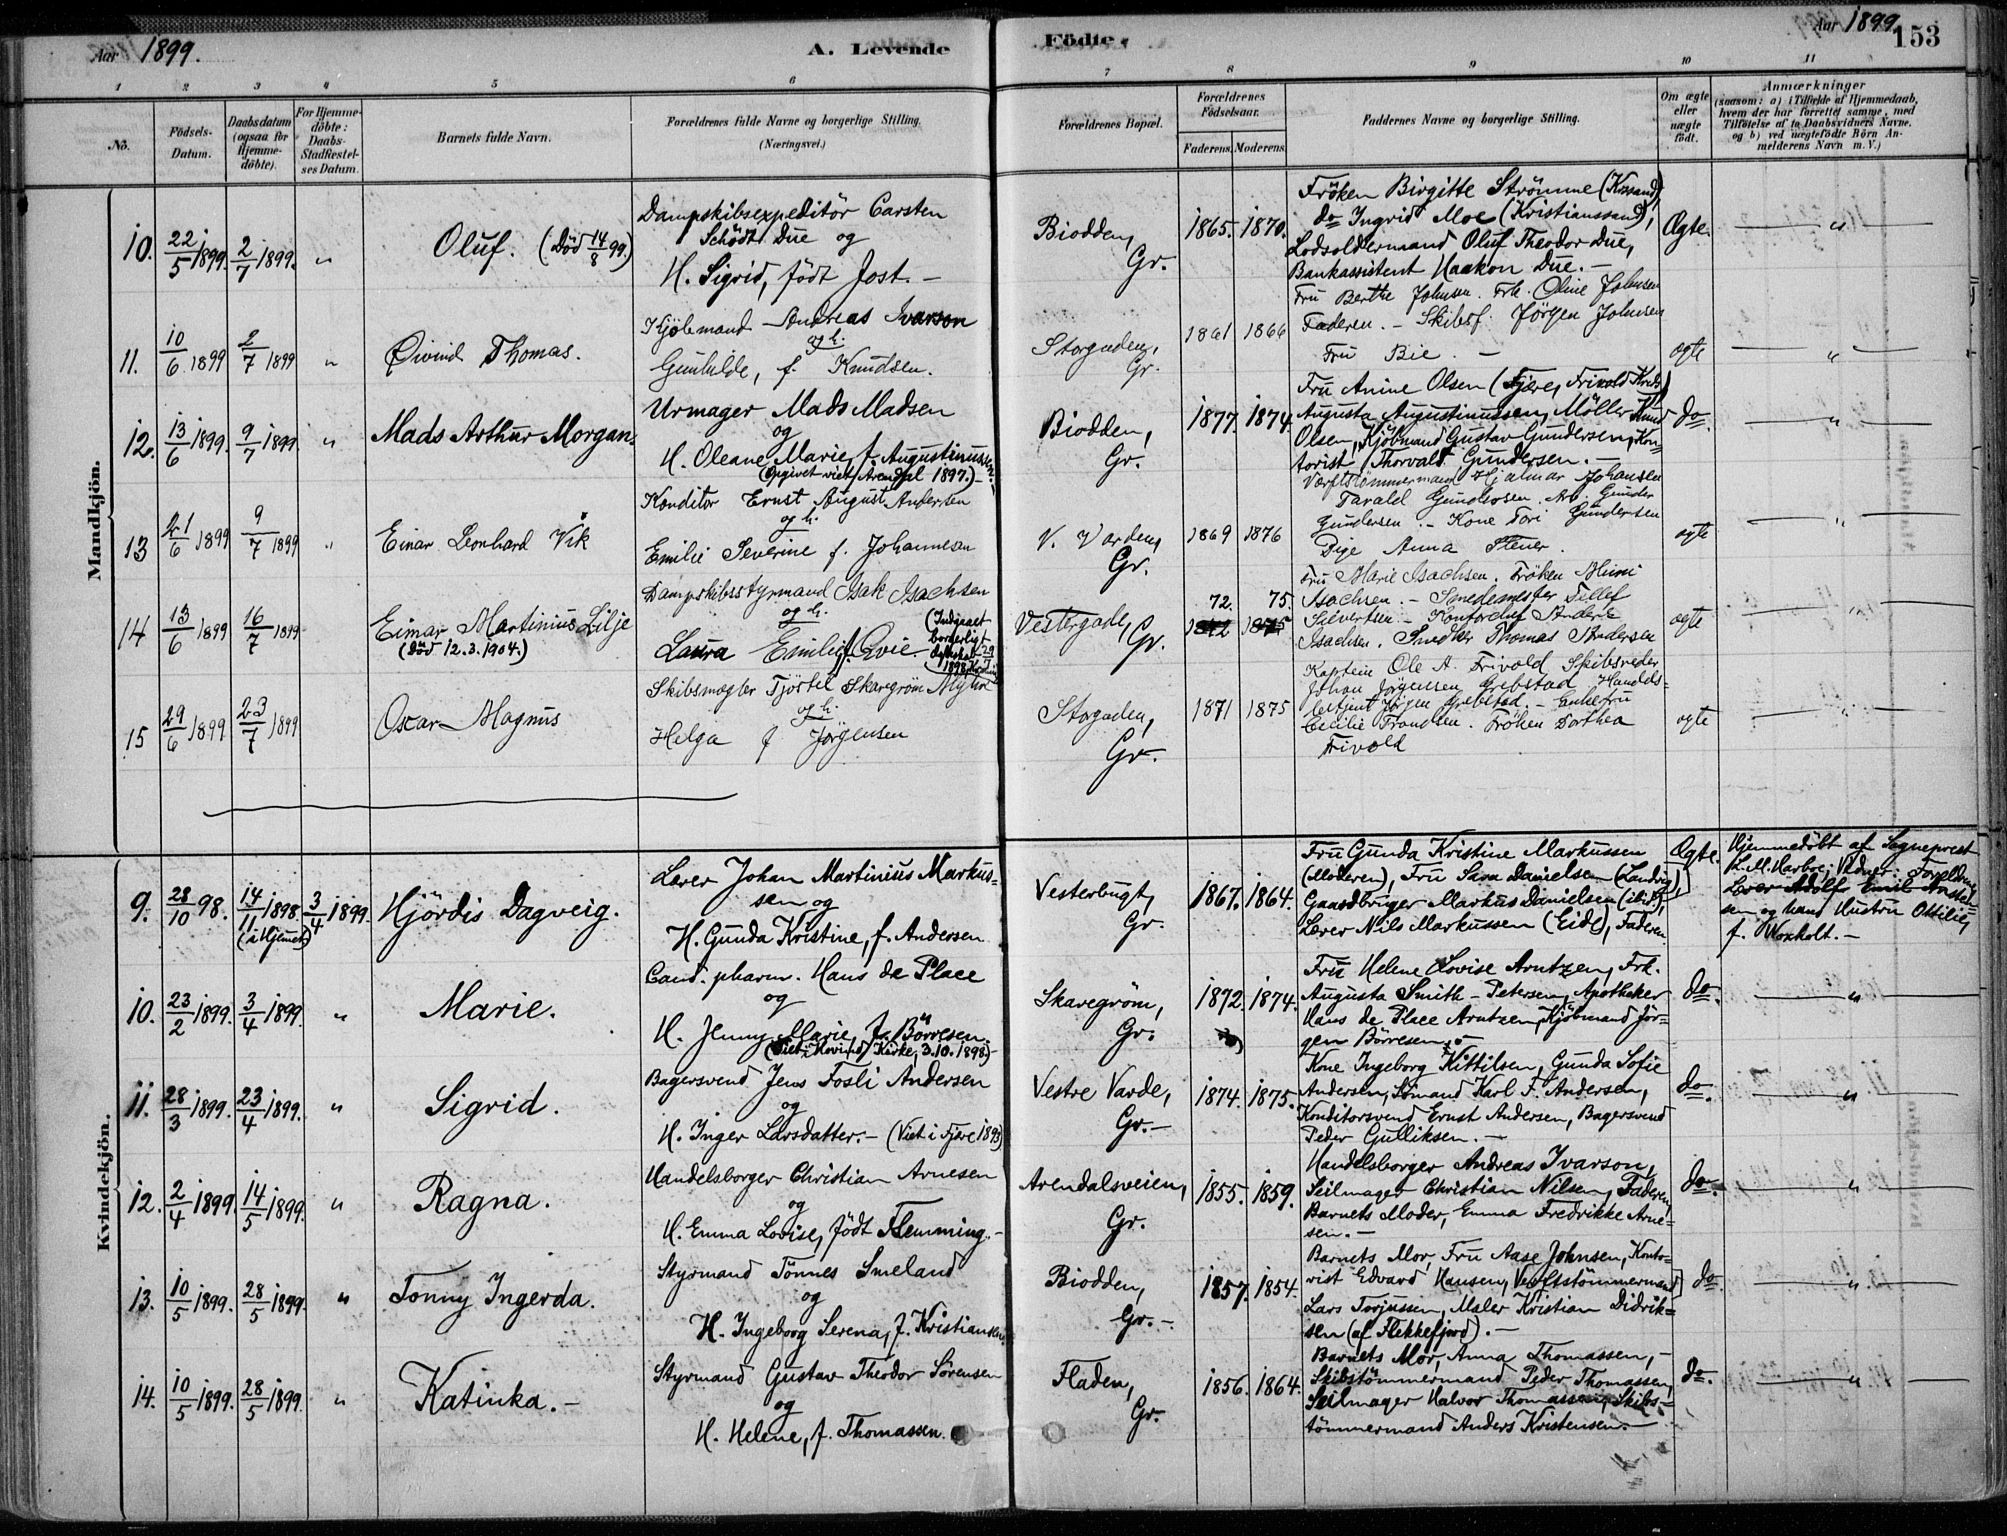 Aar 1899.
A. Levende
Födte.
Aar 1899.
153
1 2 3 4 5 6 7 8 9 10 11
No.
Födsels-
Datum.
Daabsdatum
(ogsaa for
Hjemme-
döbte).
For Hjemme-
döbte:
Daabs-
Stadfæstel-
ses Datum.
Barnets fulde Navn.
Forældrenes fulde Navne og borgerlige Stilling.
(Næringsvei.)
Forældrenes Bopæl.
Forældrenes
Födselsaar.
Faderens. Moderens.
Faddernes Navne og borgerlige Stilling.
Om ægte
eller
uægte
født.
Anmærkninger
(saasom: a) i Tilfælde af Hjemmedaab,
hvem der har forrettet samme, med
Tilföielse af to Daabsvidners Navne.
og b) ved uægtefödte Börn An-
melderens Navn m. V.)
Mandkjön.
10. 22/5 1899. 2/7 1899. " Oluf. (Död 14/8 99.)
Dampskibsexpeditör Carsten
Schödt Due og
H. Sigrid, födt Jost. -
Biodden,
Gr.
1865. 1870.
Fröken Birgitte Strömme (Krssand),
do Ingrid Moe (Kristianssand),
Lodsoldermand Oluf Theodor Due,
Bankassistent Haakon Due. -
Ægte. "
11. 10/6 1899 2/7 1899 " Øivind Thomas.
Kjöbmand Andreas Ivarson
og h.
Gunhilde, f. Knudsen.
Storgaden,
Gr.
1861 1866
Fru Berthe Johnsen. Frk. Oline Johnsen
Faderen. - Skibsf. Jörgen Johnsen
Fru Bie. -
ægte "
12. 13/6 1899. 9/7 1899. " Mads Arthur Morgan.
Urmager Mads Madsen
og
H. Oleane Marie, f. Augustinussen.
(Opgivet viet i Arendal 1897.) -
Biodden,
Gr.
1877. 1874.
Fru Anine Olsen (Fjære, Frivold Kreds)
Augusta Augustinussen, Möller Knud
Olsen, Kjöbmand Gustav Gundersen, Kon-
torist Thorvald Gundersen. -
do. "
13 21/6 1899 9/7 1899 " Einar Leonhard Vik
Konditor Ernst August Andersen
og h.
Emilie Severine f. Johannesen
V. Varden,
Gr.
1869 1876
Værftstömmermand Hjalmar Johansen
Tarald Gundersen. Arb. Gunder
Gundersen. - Kone Tori Gundersen
Pige Anna Stener.
ægte "
14 13/6 1899 16/7 1899 Einar Martinius Lilje
(Död 12.3.1904.)
Dampskibsstyrmand Isak Isachsen
og h.
Laura Emilie f. Evie
(Indgaaet
borgerligt
Ægteskab
1898
Vestergade,
Gr.
72. 75.
1872 1875
Fru Marie Isachsen. Fröken Mimi
Isachsen. - Smedemester Tellef
Sivertsen. - Kontorchef Anders
Isachsen. Snedker Thomas Andersen
ægte "
15 29/6 1899 23/7 1899 Oscar Magnus
Skibsmægler Tjöstel Skaregröm Myhre
og h.
Helga f Jörgensen
Storgaden,
Gr.
1871 1875
Kaptein Ole A. Frivold Skibsreder
Johan Jörgensen Grebstad Handels-
betjent Jörgen Grebstad. - Enkefru
Cecilie Frandsen. Fröken Dorthea
Frivold
ægte "
Kvindekjön.
9. 28/10 98. 14/11 1898. (i Hjemmet) 3/4 1899. Hjördis Dagveig.
Lærer Johan Martinius Markus-
sen og
H. Gunda Kristine, f. Andersen
Vesterbugt,
Gr.
1867. 1864.
Fru Gunda Kristine Markussen
(Moderen), Fru Sara Danielsen (Landvig),
Gaardbruger Markus Danielsen (ibid.),
Lærer Nils Markussen (Eide), Faderen.
Ægte.
Hjemmedöbt af Sogneprest
L. M. Harboe; Vidner: Forældrene
Lærer Adolf Emil Arntsø-
sen og hans Hustru Ottilie,
f. Woxholt. -
10. 23/2 1899. 3/4 1899. " Marie.
Cand. pharm. Hans de Place
og
H. Jenny Marie, f. Börresen.
(Viet i Hovind Kirke, 3.10.1898) -
Skaregröm,
Gr.
1872. 1874.
Fru Helene Lovise Arntzen, Frk.
Augusta Smith-Petersen, Apotheker
Hans de Place Arntzen, Kjöbmand Jör-
gen Börresen. -
do. "
11. 28/3 1899. 23/4 1899. " Sigrid.
Bagersvend Jens Fosli Andersen
og
H. Inger Larsdatter. - (Viet i Fjære 1893)
Vestre Varde,
Gr. -
1874. 1875.
Kone Ingeborg Kittilsen, Gunda Sofie
Andersen, Sömand Karl F. Andersen,
Konditorsvend Ernst Andersen, Bagersvend
Peder Gulliksen. -
do. "
12. 2/4 1899. 14/5 1899. " Ragna.
Handelsborger Christian Arnesen
og
H. Emma Lovise, födt Flemming. -
Arendalsveien,
Gr.
1855. 1859.
Handelsborger Andreas Ivarson,
Seilmager Christian Nilsen, Faderen,
Barnets Moder, Emma Fredrikke Arne-
sen. -
do. "
13. 10/5 1899. 28/5 1899. " Tonny Ingerda.
Styrmand Tönnes Smeland
og
H. Ingeborg Serena, f. Kristiansen.
Biodden,
Gr. -
1857. 1854.
Barnets Mor, Fru Aase Johnsen, Konto-
rist Edvard Hansen, Verftstömmermand
Lars Torjussen, Maler Kristian Didrik-
sen (af Flekkefjord). -
do "
14. 10/5 1899. 28/5 1899. " Katinka. -
Styrmand Gustav Theodor Sörensen
og
H. Helene, f. Thomassen.
Fladen,
Gr.
1856. 1864.
Barnets Mor, Anna Thomassen, -
Skibstömmermand Peder Thomassen,
Seilmager Halvor Thomassen, Skibs-
tömmermand Anders Kristensen. -
do. "